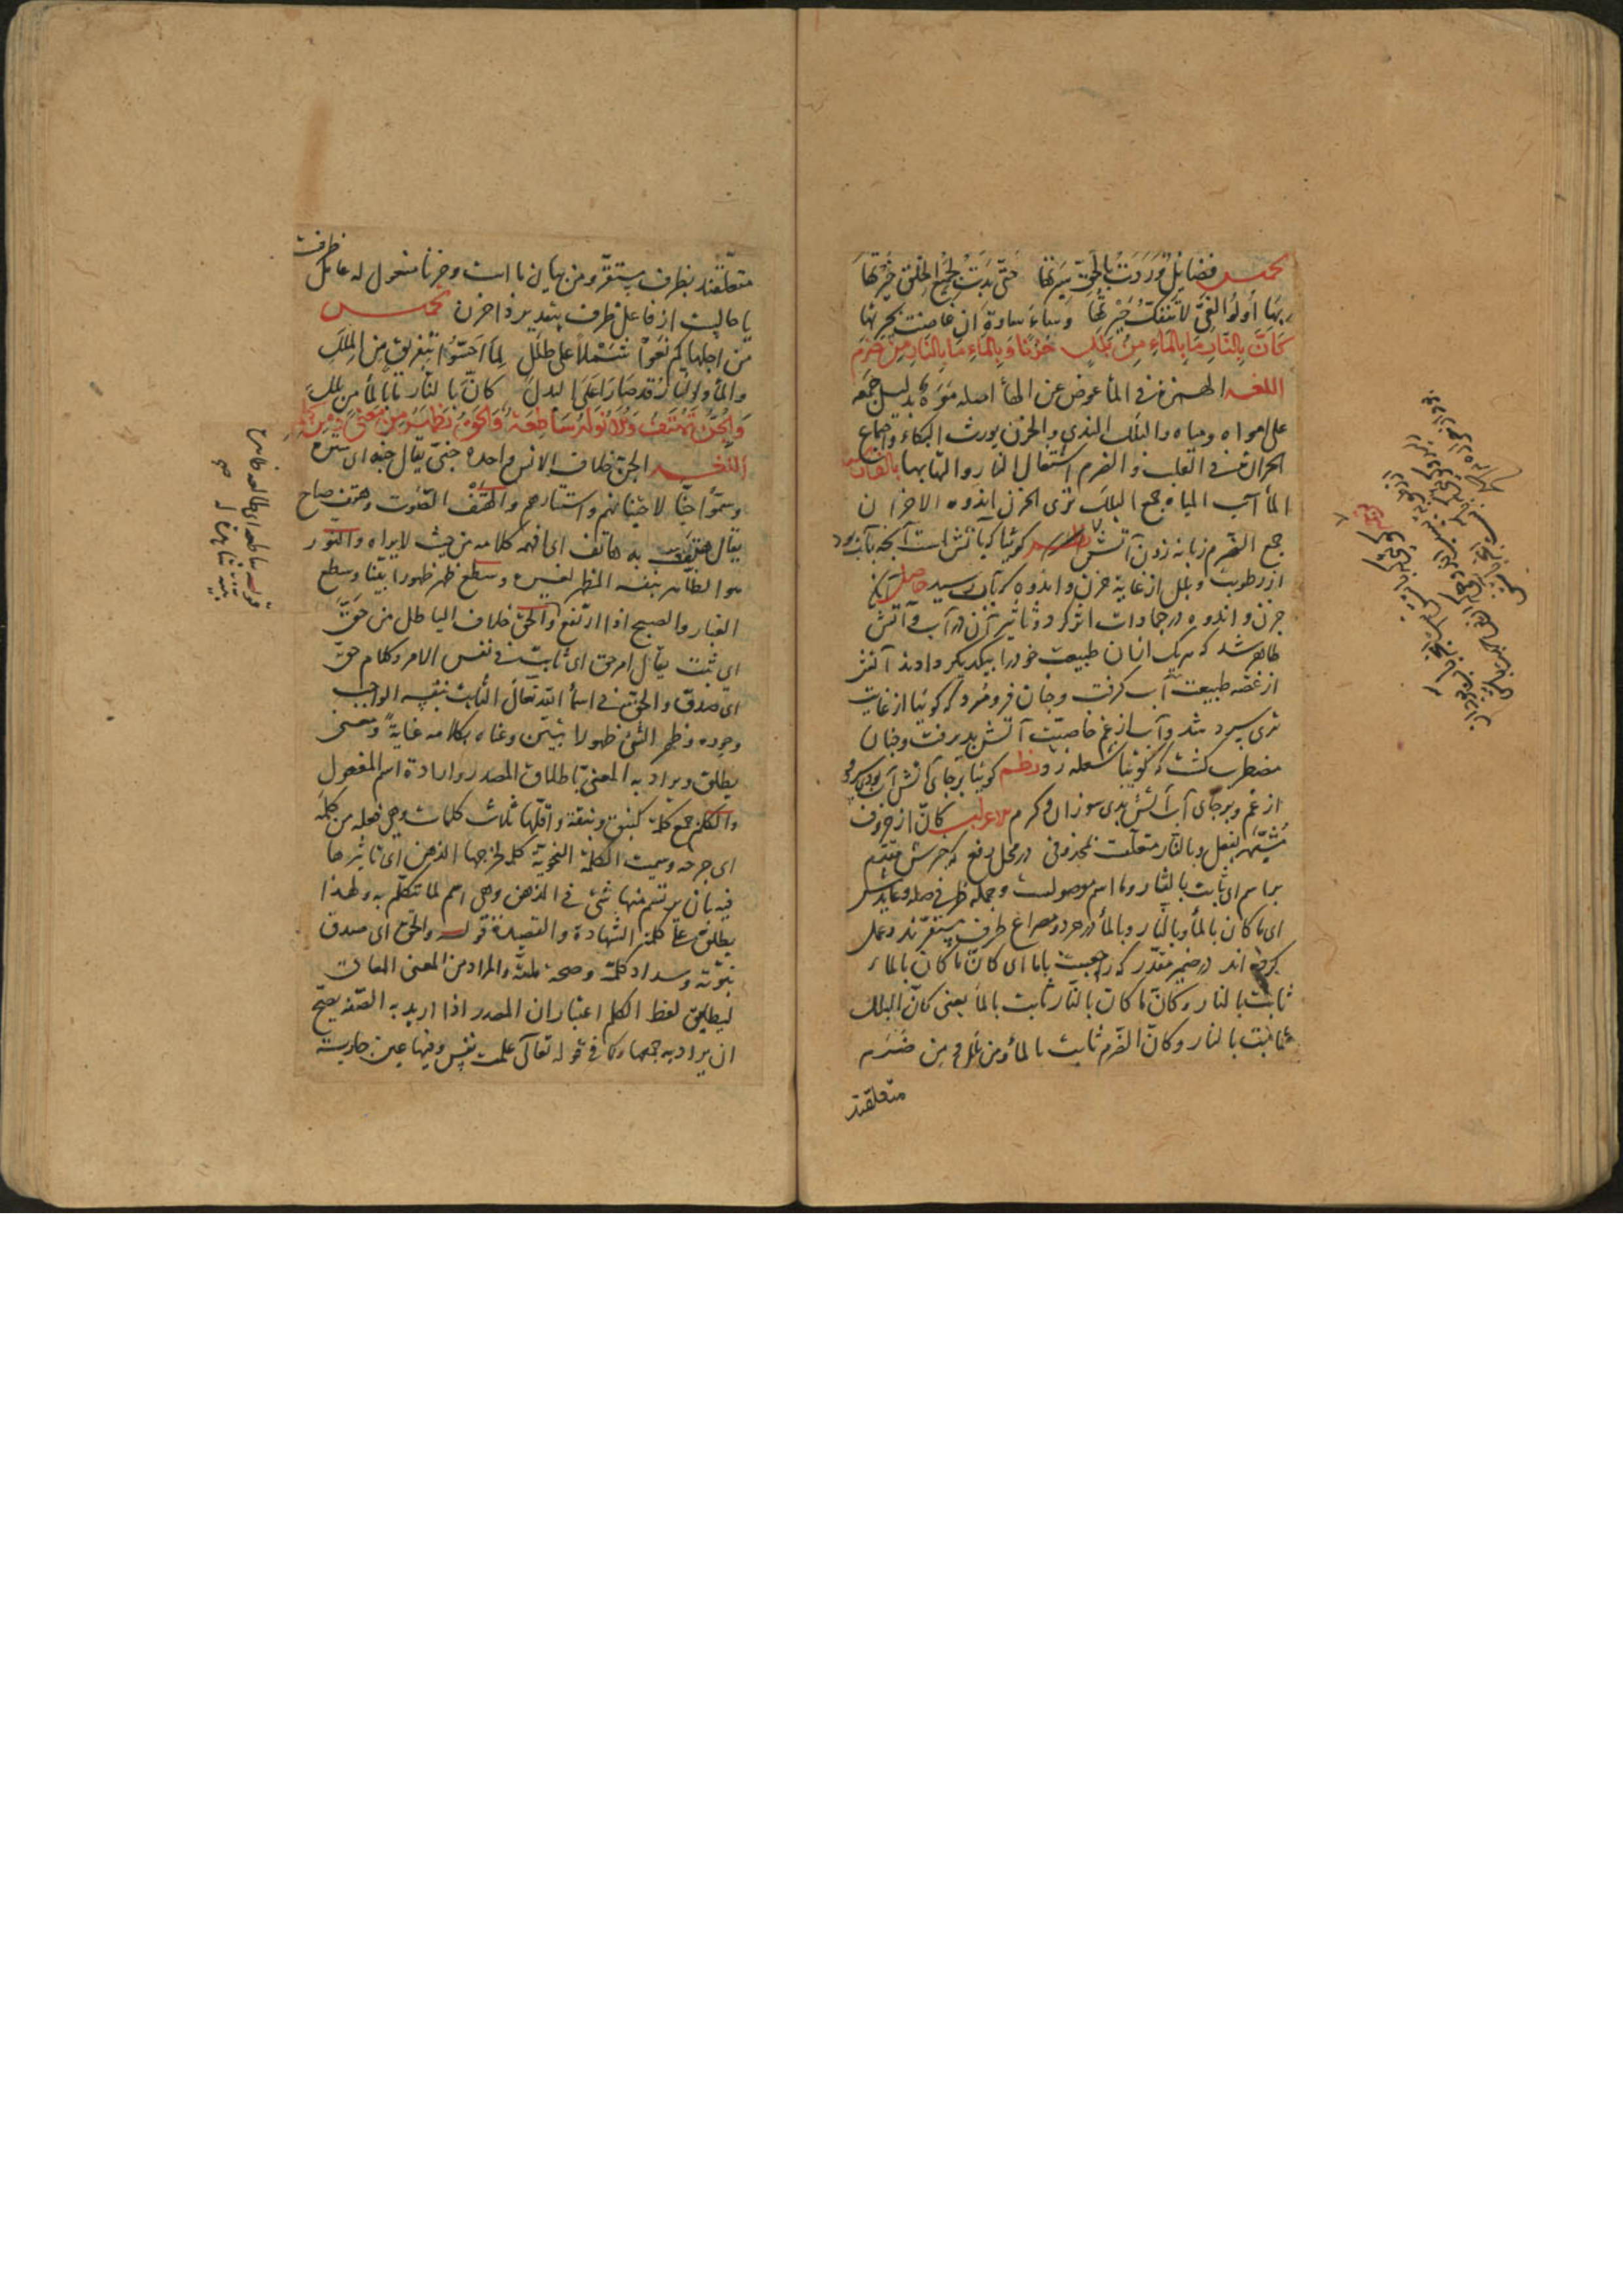 تخميس فضائل وردت بالحق سيرتها حتى بدت لجميع الخلق خبرتها
بها أولو الغي لا تنفك حيرتها وساء ساوة ان غاضت بحيرتها
كأن بالنار ما بالماء من بلل حزنا وبالماء ما بالنار من ضرم
اللغة الهمزة في الماء عوض عن الهاء اصله موه بدليل جمعه
على امواه ومياه والبلل الندى والحزن يورث البكاء واجتماع
الحرارة في القلب والضرم اشتعال النار والتهابها بالفارسية
الماء آب المياه جمع البلل تری الحزن اندوه الاحزان
جمع الضرم زبانه زدن آتش گوئيا كه بآتش است آنچه بآب بود
از رطوبت وبلل از غاية حزن واندوه كه بآن رسيد حاصل آنكه
حزن واندوه در جمادات اثر كرد وتاثير آن در آب وآتش
ظاهر شد كه هر يك از ان طبيعت خود را بيكديگر دادند آتش
از غصه طبيعت آب گرفت وچنان فرو مرد كه گوئيا از غايت
تری سرد شد وآب از غم خاصيت آتش پذيرفت وچنان
مضطرب گشت كه گوئيا شعله زد نظم گوئيا بر جای آتش آب بودی سرد
از غم وبر جای آب آتش بدی سوزان وگرم الاعراب كأن از حروف
مشبهه بفعل وبالنار متعلقست بمحذوفی در محل رفع كه خبرش مقدم
بر اسم ای ثابت بالنار وما اسم موصولست وجمله ظرفی صله وعايدش
ای ما كان بالماء وبالنار وبالماء در هر دو مصراع ظرف مستقرند وعمل
كرده اند در ضمير مقدر كه راجعست باما ای كأن ما كان بالماء
ثابت بالنار وكأن ما كان بالنار ثابت بالماء يعنی كأن البلل
ثابت بالنار وكأن الضرم ثابت بالماء ومن بلل ومن ضرم
متعلقند
متعلقند بظرف مستقر ومن بيان ما است وحزنا مفعول له عامل ظرفست
يا حاليست از فاعل ظرف بتقدير ذا حزن تخميس
من اجلها كم نعوا شملا على طلل لما احسوا بتفريق من الملل
والماء والنار قد صارا على البدل كأن بالنار ما بالماء من بلل
والجن تهتف والانوار ساطعة والحق يظهر من معنى ومن كلم
اللغة الجن خلاف الانس واحده جنی يقال جنه ای ستره
وسموا جنا لاجتنانهم واستتارهم والهتف الصوت وهتف صاح
يقال هتف به هاتف ای افهمه كلامه من حيث لا يراه والنور
هو الظاهر بنفسه المظهر لغيره وسطع ظهر ظهورا بينا وسطع
الغبار والصبح اذا ارتفع والحق خلاف الباطل من حق
ای ثبت يقال امر حق ای ثابت فی نفس الامر وكلام حق
ای صدق والحق فی اسماء الله تعالی الثابت بنفسه الواجب
وجوده وظهر الشئ ظهورا تبين وعناه بكلامه عناية ومعنى
يطلق ويراد به المعنی باطلاق المصدر وارادة اسم المفعول
والكلم جمع كلمة كنبق ونبقة واقلها ثلاث كلمات وهی فعلة من كلمه
ای جرحه وسميت الكلمة النحوية كلمة لجرحها الذهن ای تاثيرها
فيه بان يرتسم منها شئ فی الذهن وهی اسم لما تتكلم به ولهذا
يطلق علی كلمة الشهادة والقصيدة قوله والحق ای صدق
نبوته وسداد كلمته وصحة ملته والمراد من المعنى المعانی
ليطابق لفظ الكلم اعتبار ان المصدر اذا اريد به الصفة يصح
ان يراد به جمعها كما فی قوله تعالی علمت نفس وفيها عين جارية